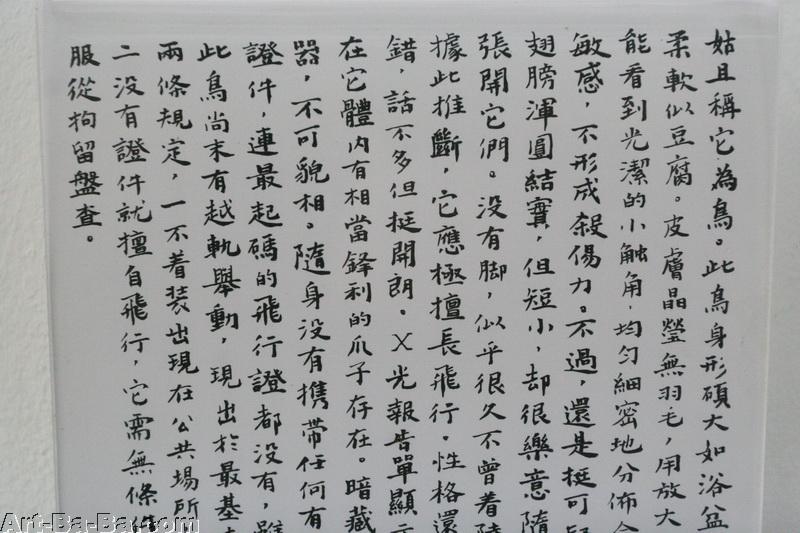 姑且稱它為鳥。此鳥身形碩大如浴盆
柔軟似豆腐。皮膚晶瑩無羽毛，用放大
能看到光潔的小触角，均勻細密地分佈
敏感，不形成殺傷力。不過，還是挺可
翅膀渾圓結實，但短小，却很樂意隨
張開它們。没有脚，似乎很久不曾着
據此推斷，它應極擅長飛行。性格還
錯，話不多但挺開朗。X光報告單顯
在它體内有相當鋒利的爪子存在。暗藏
器，不可貌相。隨身没有攜帶任何有
證件，連最起碼的飛行證都没有，雖
此鳥尚未有越軌舉動，現出於最基
兩條規定，一不着装出現在公共場所
二没有證件就擅自飛行，它需無條件
服從拘留盤查。
Art-Ba-Ba.com